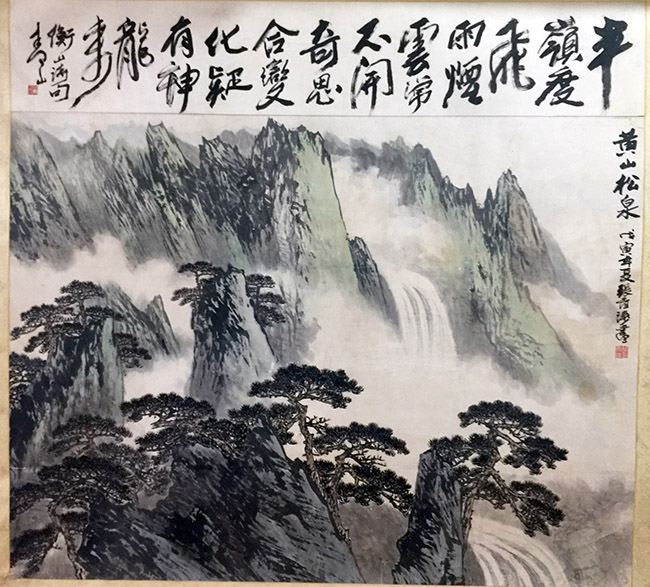 半
嶺度
飛
雨煙
雲常
不開
奇思
合變
化疑
有神
龍
來
衡山詩句
黄山松泉
戊寅年夏張